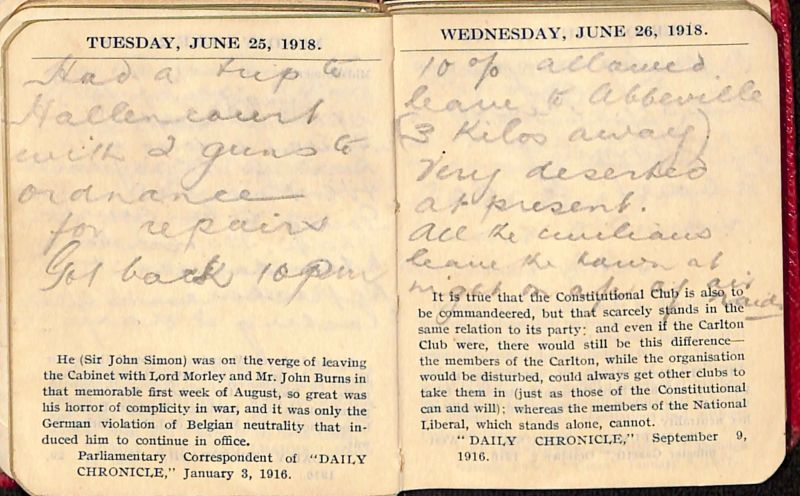 TUESDAY, JUNE 25, 1918.
Had a trip to
Hallencourt
with 2 guns to
ordnance
for repairs
Got back 10pm
He (Sir John Simon) was on the verge of leaving
the Cabinet with Lord Morley and Mr. John Burns in
that memorable first week of August, so great was
his horror of complicity in war, and it was only the
German violation of Belgian neutrality that in-
duced him to continue in office.
Parliamentary Correspondent of "DAILY
CHRONICLE," January 3, 1916.
WEDNESDAY, JUNE 26, 1918.
10 % allowed
leave to Abbeville
(3 Kilos away)
Very deserted
at present.
All the civilians
leave the town at
night on a/c of air
raids
It is true that the Constitutional Club is also to
be commandeered, but that scarcely stands in the
same relation to its party; and even if the Carlton
Club were, there would still be this difference—
the members of the Carlton, while the organisation
would be disturbed, could always get other clubs to
take them in (just as those of the Constitutional
can and will); whereas the members of the National
Liberal, which stands alone, cannot.
"DAILY CHRONICLE," September 9,
1916.